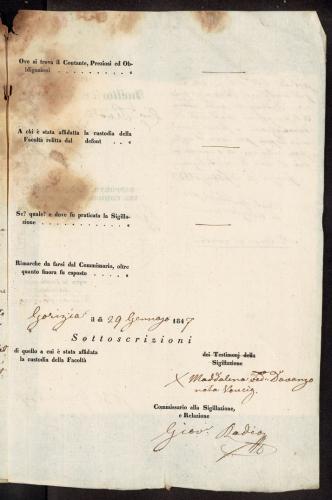 Ove si trova il Contante, Preziosi ed Ob-
bligazioni
A chi è stata affidatta la custodia della
Facoltà relitta dal defont
Se? quale? e dove fu praticata la Sigilla-
zione
Rimarche da farsi dal Commissario, oltre
quanto fuora fu esposto
Gorizia a di 29 Gennajo 1847
Sottoscrizioni
di quello a cui è stata affidata
la custodia della Facoltà
dei Testimonj della
Sigillazione
X Maddalena ved. Davanzo
nata
Commissario alla Sigillazione,
e Relazione
Giov. Radio